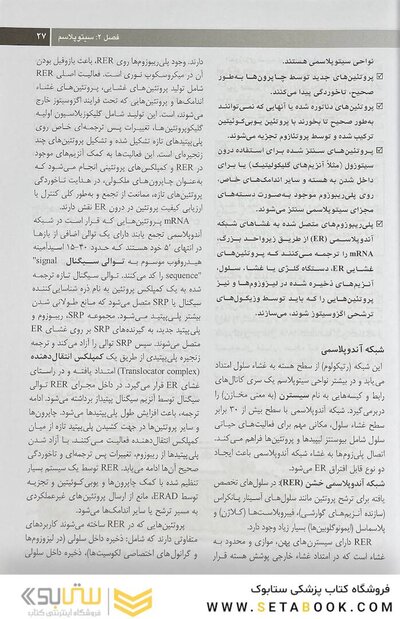 فصل ۲: سیتوپلاسم
۲۷
نواحی سیتوپلاسمی هستند.
پروتئین‌های جدید توسط چاپرون‌ها به‌طور
صحیح، تاخوردگی پیدا می‌کنند.
پروتئین‌های دناتوره شده یا آنهایی که نمی‌توانند
به‌طور صحیح تا بخورند با پروتئین یوبی‌کوئیتین
ترکیب شده و توسط پروتئازوم تجزیه می‌شوند.
پروتئین‌های سنتز شده برای استفاده درون
سیتوزول (مثلاً آنزیم‌های گلیکولیتیک) یا برای
داخل شدن به هسته و سایر اندامک‌های خاص،
روی پلی‌ریبوزوم موجود به‌صورت دسته‌های
مجزای سیتوپلاسمی سنتز می‌شوند.
پلی‌ریبوزوم‌های متصل شده به غشاهای شبکه
آندوپلاسمی (ER) از طریق زیرواحد بزرگ،
mRNA را ترجمه می‌کنند که پروتئین‌های
غشایی ER، دستگاه گلژی یا غشاء سلول،
آنزیم‌های ذخیره شده در لیزوزوم‌ها و نیز
پروتئین‌هایی را که باید توسط وزیکول‌های
ترشحی اگزوسیتوز شوند، می‌سازند.
شبکه آندوپلاسمی
این شبکه (رتیکولوم) از سطح هسته به غشاء سلول امتداد
می‌یابد و در بیشتر نواحی سیتوپلاسم یک سری کانال‌های
رابط و کیسه‌هایی به نام سیسترن (به معنی مخازن) را
دربرمی گیرد. شبکه آندوپلاسمی با سطح بیش از ۳۰ برابر
سطح غشاء سلول، مکانی مهم برای فعالیت‌های حیاتی
سلول شامل بیوسنتز لیپیدها و پروتئین‌ها فراهم می‌کند.
اتصال پلی‌زوم‌ها به غشاء شبکه آندوپلاسمی باعث ایجاد
دو نوع قابل افتراق ER می‌شود.
شبکه آندوپلاسمی خشن (RER): در سلول‌های تخصص
یافته برای ترشح پروتئین مانند سلول‌های آسینار پانکراس
(سازنده آنزیم‌های گوارشی)، فیبروبلاست‌ها (کلاژن) و
پلاسماسل (ایمونوگلوبین‌ها) بسیار زیاد وجود دارد.
RER دارای سیسترن‌های پهن، موازی و محدود به
غشاء است که در امتداد غشاء خارجی پوشش هسته قرار
دارند. وجود پلی‌ریبوزوم‌ها روی RER، باعث بازوفیل بودن
آن در میکروسکوپ نوری است. فعالیت اصلی RER
شامل تولید پروتئین‌های غشایی، پروتئین‌های غشاء
اندامک‌ها و پروتئین‌هایی که تحت فرایند اگزوسیتوز خارج
می‌شوند، است. این تولید شامل گلیکوزیلاسیون اولیه
گلیکوپروتئین‌ها، تغییرات پس ترجمه‌ای خاص روی
پلی‌پپتیدهای تازه تشکیل شده و تشکیل پروتئین‌های چند
زنجیره‌ای است. این فعالیت‌ها به کمک آنزیم‌های موجود
در RER و کمپلکس‌های پروتئینی انجام می‌شود که
به‌عنوان چاپرون‌های ملکولی، در هدایت تاخوردگی
پروتئین‌های تازه، ممانعت از تجمع و به‌طور کلی کنترل یا
ارزیابی کیفیت پروتئین در درون ER نقش دارند.
mRNA پروتئین‌هایی که قرار است در شبکه
آندوپلاسمی تجمع یابند دارای یک توالی اضافی از بازها
در انتهای ′۵ خود هستند که حدود ۴۰-۱۵ اسیدآمینه
هیدروفوب موسوم به توالی سیگنال "signal
sequence" را کد می‌کنند. توالی سیگنال تازه ترجمه
شده به یک کمپلکس پروتئین به نام ذره شناسایی کننده
سیگنال یا SRP متصل می‌شود که مانع طولانی شدن
بیشتر پلی‌پپتید می‌شود. مجموعه SRP، ریبوزوم و
پلی‌پپتید جدید، به گیرنده‌های SRP بر روی غشای ER
متصل می‌شوند. سپس SRP توالی را آزاد می‌کند و ترجمه
زنجیره پلی‌پپتیدی از طریق یک کمپلکس انتقال‌دهنده
(Translocator complex) امتداد یافته و در راستای
غشای ER قرار می‌گیرد. در داخل مجرای RER توالی
سیگنال توسط آنزیم سیگنال پپتیداز برداشته می‌شود. ادامه
ترجمه، باعث افزایش طول پلی‌پپتیدها می‌شود. چاپرون‌ها
و سایر پروتئین‌ها در جهت کشیدن پلی‌پپتید تازه از میان
کمپلکس انتقال‌دهنده فعالیت می‌کنند. با آزاد شدن
پلی‌پپتیدها از ریبوزوم، تغییرات پس ترجمه‌ای و تاخوردگی
صحیح آن‌ها ادامه می‌یابد. RER توسط یک سیستم بسیار
تنظیم شده با کمک چاپرون‌ها و یوبی‌کوئیتین و تجزیه
توسط ERAD، مانع از ارسال پروتئین‌های غیرعملکردی
به مسیر ترشح یا سایر اندامک‌ها می‌شود.
پروتئین‌هایی که در RER ساخته می‌شوند کاربردهای
متفاوتی دارند که شامل: ذخیره داخل سلولی (در لیزوزوم‌ها
و گرانول‌های اختصاصی لکوسیت‌ها)، ذخیره داخل سلولی
فروشگاه کتاب پزشکی ستابوک
WWW.SETABOOK.COM
فروشگاه اینترنتی کتاب